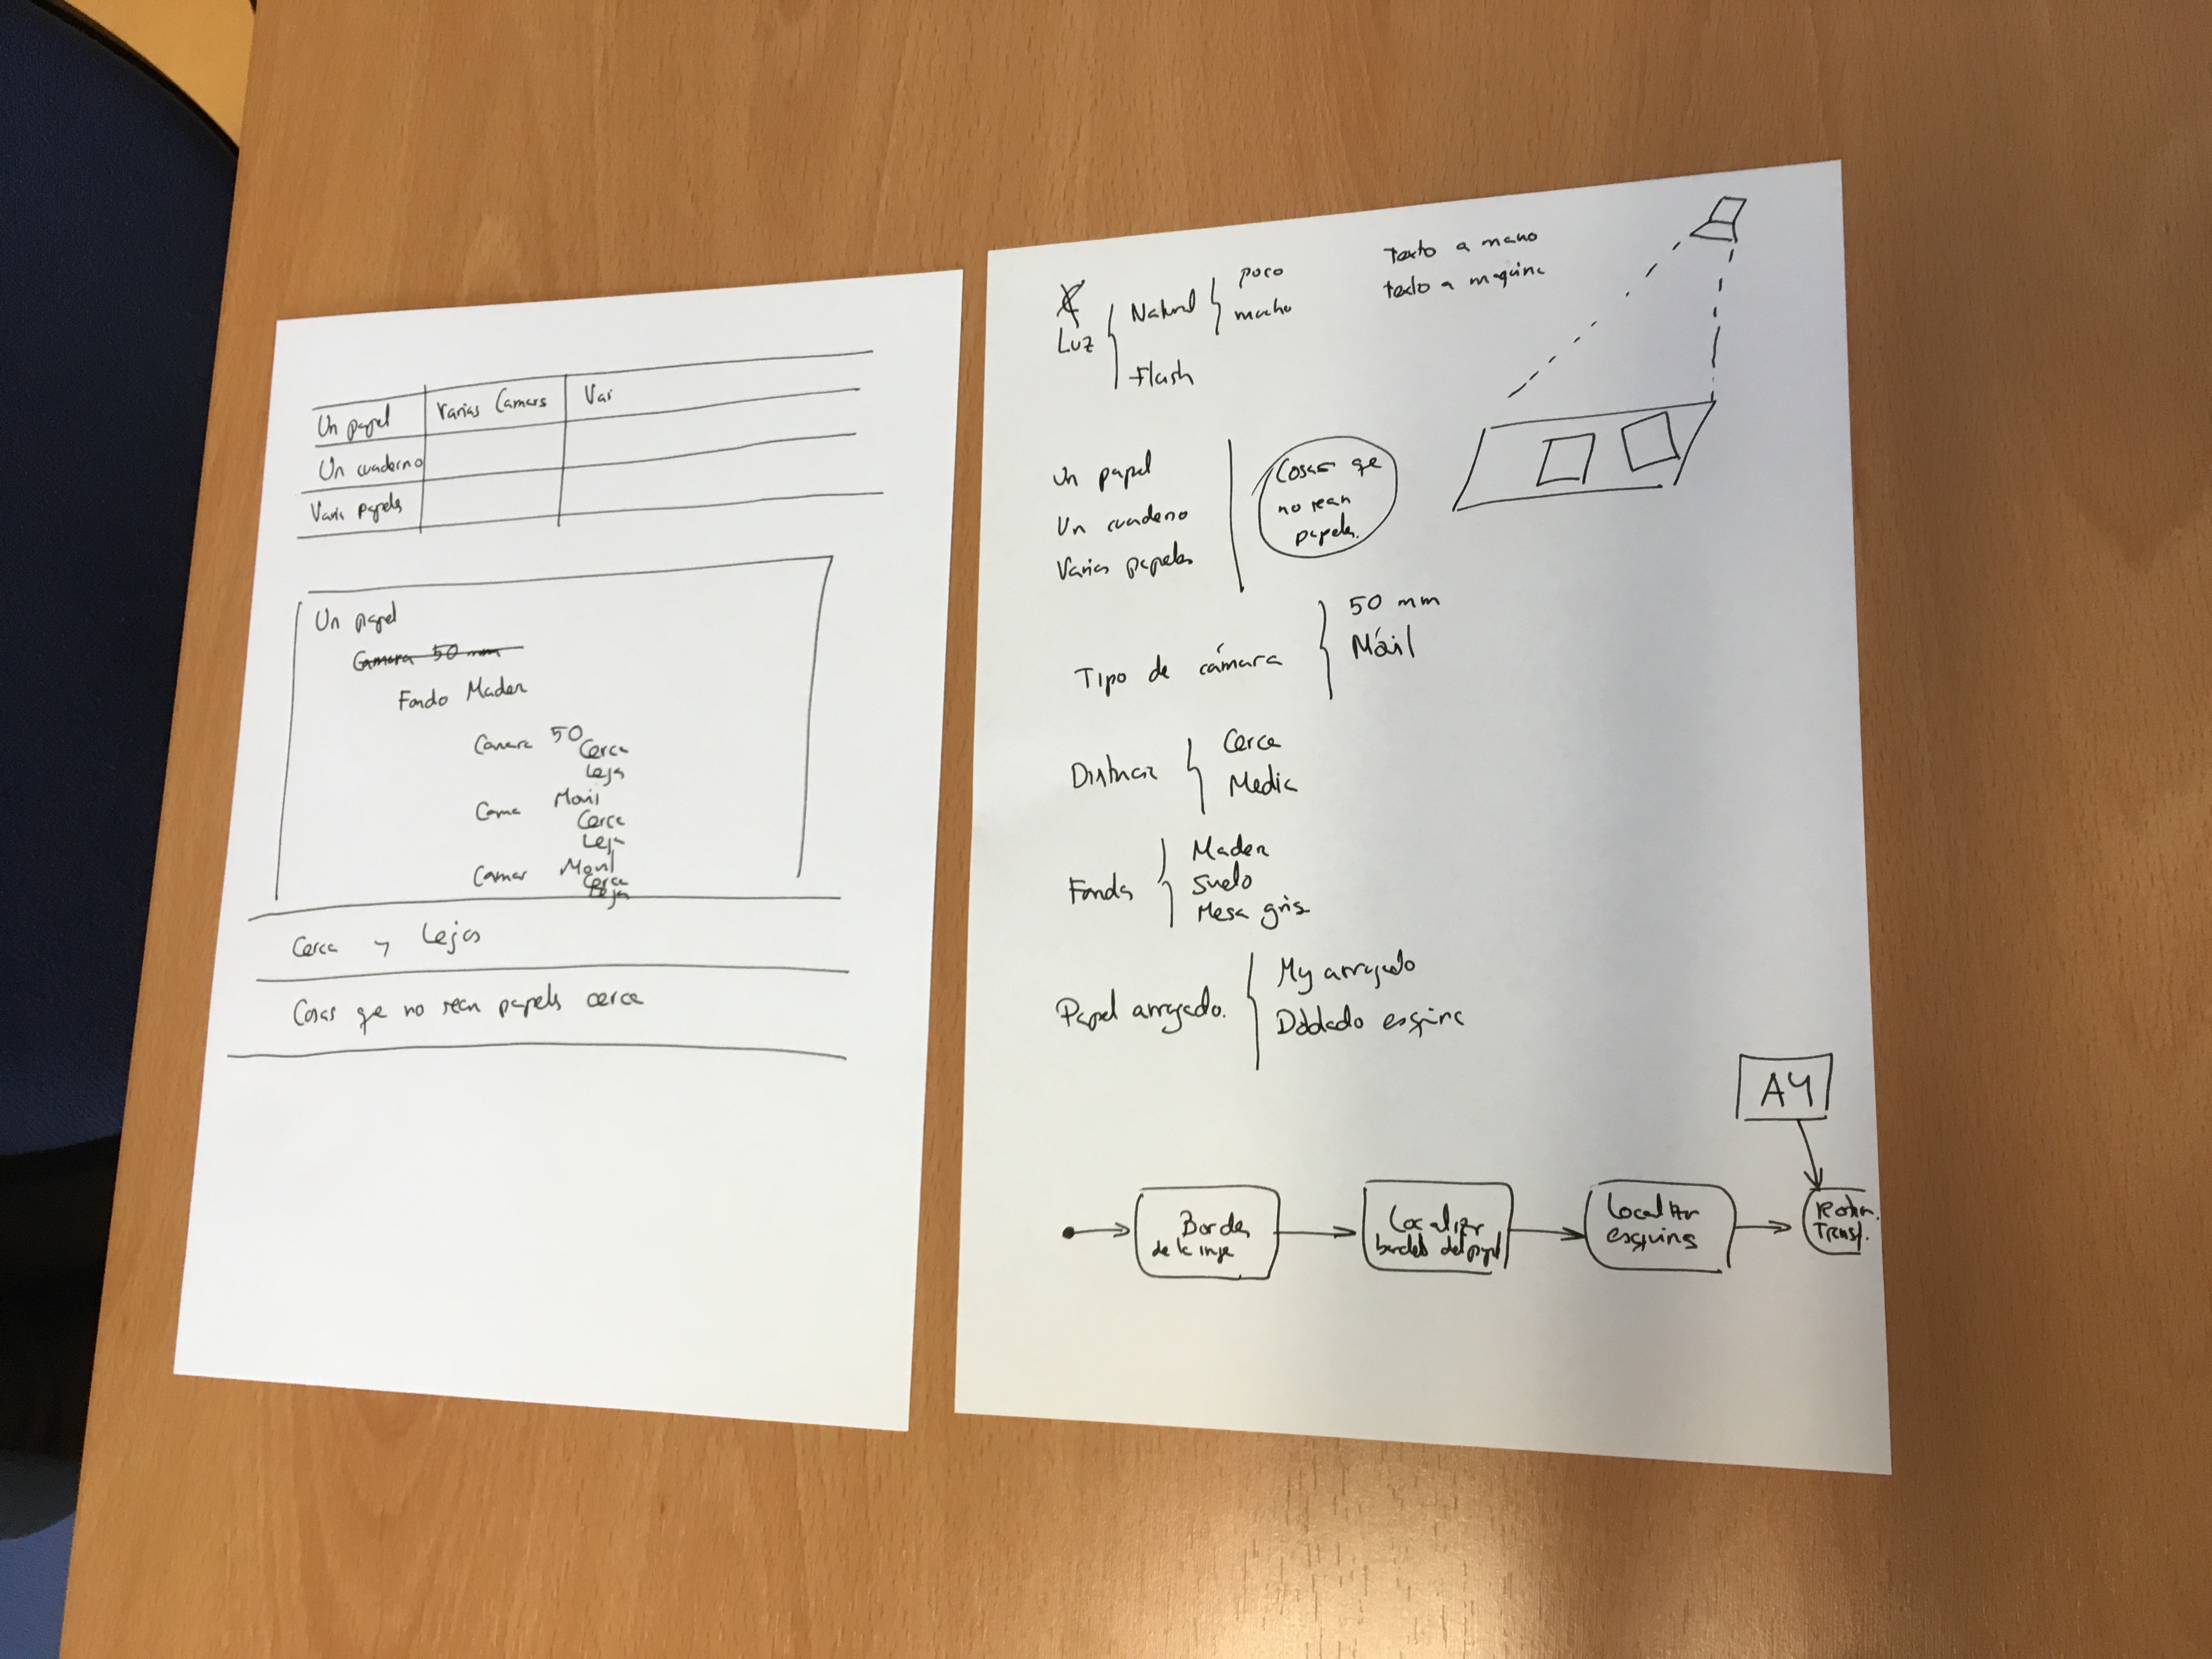 Un papel
Varias Camars
Vai
Un cuaderno
Varis papels
Un papel
Camara 50 mm
Fondo Madera
Camara 50
Cerca
Lejs
Cama Movil
Cerca
Leja
Camar Movil
Cerca
Cerca y Lejos
Cosas qe no sean papels cerca
Texto a mano
texto a maquina
Luz
Natural
poco
mucho
Flash
Un papel
Un cuaderno
Varios papeles
Cosas qe
no sean
papeles.
Tipo de cámara
50 mm
Móvil
Distancia
Cerca
Media
Fondo
Madera
Suelo
Mesa gris.
Papel arrugado.
My arrugado
Doblado esquina
Bordes
de la imge
Localizar
bordes del papel
Localizar
esquinas
A4
Transf.